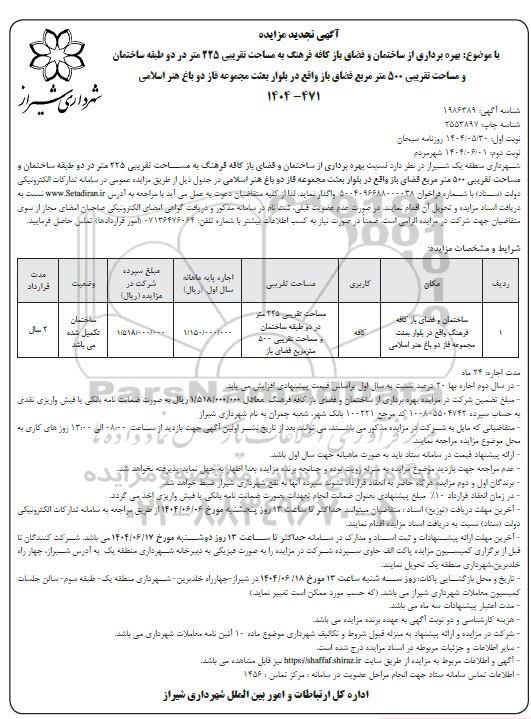 آگهی تجدید مزایده
با موضوع: بهره برداری از ساختمان و فضای باز کافه فرهنگ به مساحت تقریبی ۲۲۵ متر در دو طبقه ساختمان
و مساحت تقریبی ۵۰۰ متر مربع فضای باز واقع در بلوار بعثت مجموعه فاز دو باغ هنر اسلامی
۴۷۱- ۱۴۰۴
شهرداری شیراز
شناسه آگهی: ۱۹۸۶۳۸۹
شناسه چاپ: ۲۵۵۳۸۹۷
نوبت اول: ۱۴۰۴/۰۵/۳۰ روزنامه سبحان
نوبت دوم: ۱۴۰۴/۰۶/۰۱ شهرمردم
شهرداری منطقه یک شیراز در نظر دارد نسبت بهره برداری از ساختمان و فضای باز کافه فرهنگ به مساحت تقریبی ۲۲۵ متر در دو طبقه ساختمان و
مساحت تقریبی ۵۰۰ متر مربع فضای باز واقع در بلوار بعثت مجموعه فاز دو باغ هنر اسلامی در جدول ذیل از طریق مزایده عمومی در سامانه تدارکات الکترونیکی
دولت (ستاد) با شماره فراخوان ۵۰۰۴۰۹۶۶۸۸۰۰۰۰۳۸ واگذار نماید. لذا از کلیه متقاضیان دعوت به عمل می آید با مراجعه به آدرس www.Setadiran.ir نسبت به
دریافت اسناد مزایده و تحویل آن اقدام نمایند. در صورت عدم عضویت قبلی، ثبت نام در سامانه مذکور و دریافت گواهی امضای الکترونیکی صاحبان امضای مجاز از سوی
متقاضیان جهت شرکت در مزایده الزامی است. ضمناً در صورت نیاز به کسب اطلاعات بیشتر با شماره تلفن: ۰۷۱۳۶۴۷۶۰۶۴ (امور قراردادها) تماس حاصل فرمایید.
شرایط و مشخصات مزایده:
ردیف | مکان | کاربری | مساحت تقریبی | اجاره پایه ماهانه سال اول (ریال) | مبلغ سپرده شرکت در مزایده (ریال) | وضعیت | مدت قرارداد
۱ | ساختمان و فضای باز کافه فرهنگ واقع در بلوار بعثت مجموعه فاز دو باغ هنر اسلامی | کافه | مساحت تقریبی ۲۲۵ متر در دو طبقه ساختمان و مساحت تقریبی ۵۰۰ مترمربع فضای باز | ۱/۱۵۰/۰۰۰/۰۰۰ | ۱/۵۱۸/۰۰۰/۰۰۰ | ساختمان تکمیل شده می باشد | ۲ سال
مدت اجاره: ۲۴ ماه
- در سال دوم اجاره بها ۲۰ درصد نسبت به سال اول براساس قیمت پیشنهادی افزایش می یابد.
- مبلغ تضمین شرکت در مزایده بهره برداری از ساختمان و فضای باز کافه فرهنگ معادل ۱/۵۱۸/۰۰۰/۰۰۰ ریال به صورت ضمانت نامه بانکی یا فیش واریزی نقدی
به حساب سپرده ۱۰۰۸۰۵۵۰۴۷۴۲ کد مرجع ۱۰۰۲۲۱ بانک شهر، شعبه چمران به نام شهرداری شیراز
- متقاضیانی که مایل به شرکت در مزایده مذکور می باشند، می توانند بعد از تاریخ نشر اولین آگهی جهت بازدید از ساعت ۰۸:۰۰ الی ۱۳:۰۰ روز های کاری به
محل موضوع مزایده مراجعه نمایند.
- ارائه پیشنهاد قیمت در سامانه ستاد باید به صورت ماهیانه جهت سال اول باشد.
- عدم مراجعه جهت بازدید موضوع مزایده به منزله رویت بوده و چنانچه برنده مزایده بعداً اظهار به جهل نماید، پذیرفته نخواهد شد.
- برندگان اول و دوم مزایده هرگاه حاضر به انعقاد قرارداد نشوند سپرده آنها به نفع شهرداری شیراز ضبط خواهد شد.
- در زمان انعقاد قرارداد ۱۰٪ مبلغ پیشنهادی بعنوان ضمانت انجام تعهدات بصورت ضمانت نامه بانکی یا فیش واریزی اخذ می گردد.
- آخرین مهلت دریافت (توزیع) اسناد : متقاضیان میتوانند حداکثر تا ساعت ۱۳ روز پنجشنبه مورخ ۱۴۰۴/۰۶/۰۶ از طریق مراجعه به سامانه تدارکات الکترونیکی
دولت (ستاد) نسبت به دریافت اسناد مزایده اقدام نمایند.
- آخرین مهلت ارائه پیشنهادات و ثبت اسناد و مدارک در سامانه حداکثر تا ساعت ۱۳ روز دوشنبه مورخ ۱۴۰۴/۰۶/۱۷ می باشد. شرکت کنندگان تا
قبل از برگزاری کمیسیون مزایده پاکت الف حاوی سپرده شرکت در مزایده را به صورت فیزیکی به دبیرخانه شهرداری منطقه یک به آدرس:شیراز، چهار راه
خلدبرین،شهرداری منطقه یک تحویل نمایند.
- تاریخ و محل بازگشایی پاکات: روز سه شنبه ساعت ۱۳ مورخ ۱۴۰۴/۰۶/۱۸ در شیراز-چهارراه خلدبرین- شهرداری منطقه یک- طبقه سوم- سالن جلسات
کمیسیون معاملات شهرداری شیراز می باشد. (که حسب مورد ممکن است تغییر نماید.)
- مدت اعتبار پیشنهادات سه ماه می باشد.
- هزینه کارشناسی و دو نوبت آگهی به عهده برنده مزایده می باشد.
- شرکت در مزایده و ارائه پیشنهاد به منزله قبول شروط و تکالیف شهرداری موضوع ماده ۱۰ آئین نامه معاملات شهرداری می باشد.
- سایر اطلاعات و جزئیات مربوطه در اسناد مزایده درج شده است.
- آگهی و اطلاعات مربوط به مزایده از طریق سایت https://shaffaf.shiraz.ir نیز قابل مشاهده می باشد.
- اطلاعات تماس سامانه ستاد جهت انجام مراحل عضویت در سامانه : مرکز تماس : ۱۴۵۶
اداره کل ارتباطات و امور بین الملل شهرداری شیراز